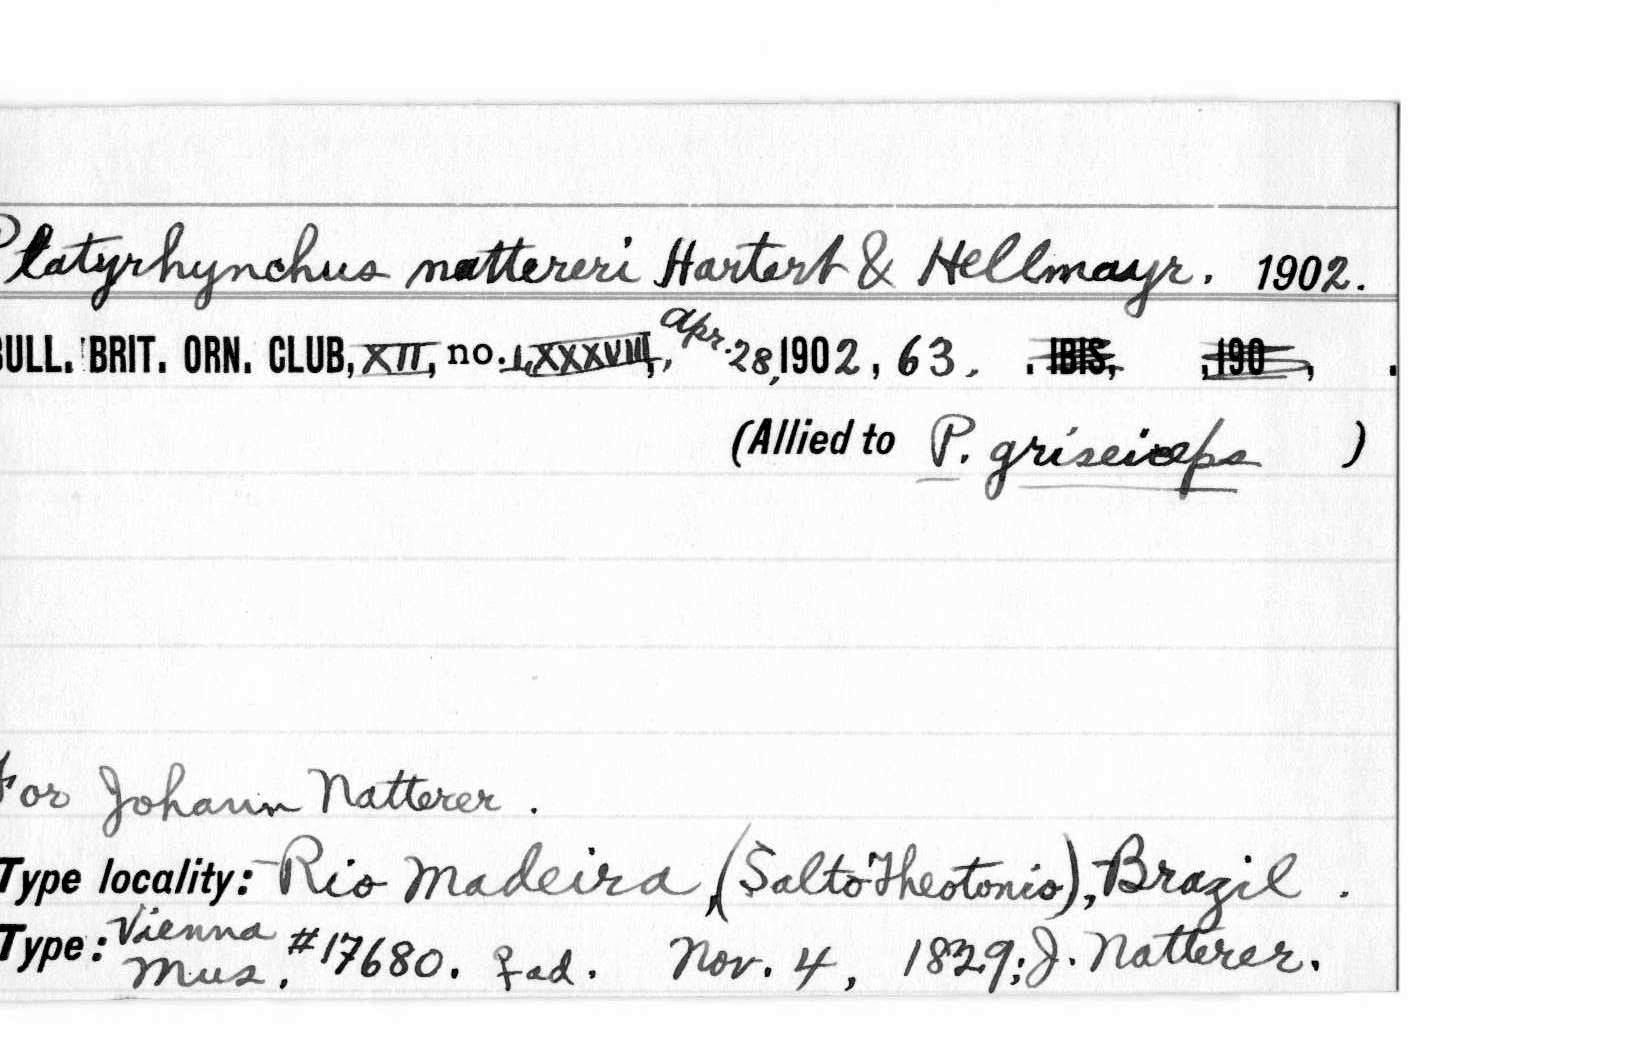 Platyrhynchus nattereri Hartert & Hellmayr. 1902.
BULL. BRIT. ORN. CLUB, XII, no. LXXXVIII, Apr. 28, 1902, 63. . IBIS, , 190 , .
(Allied to P. griseiceps )
For Johann Natterer.
Type locality: Rio Madeira, (Salto Theotonio), Brazil .
Type: Vienna Mus. #17680. ♀ ad. Nov. 4, 1829; J. Natterer.